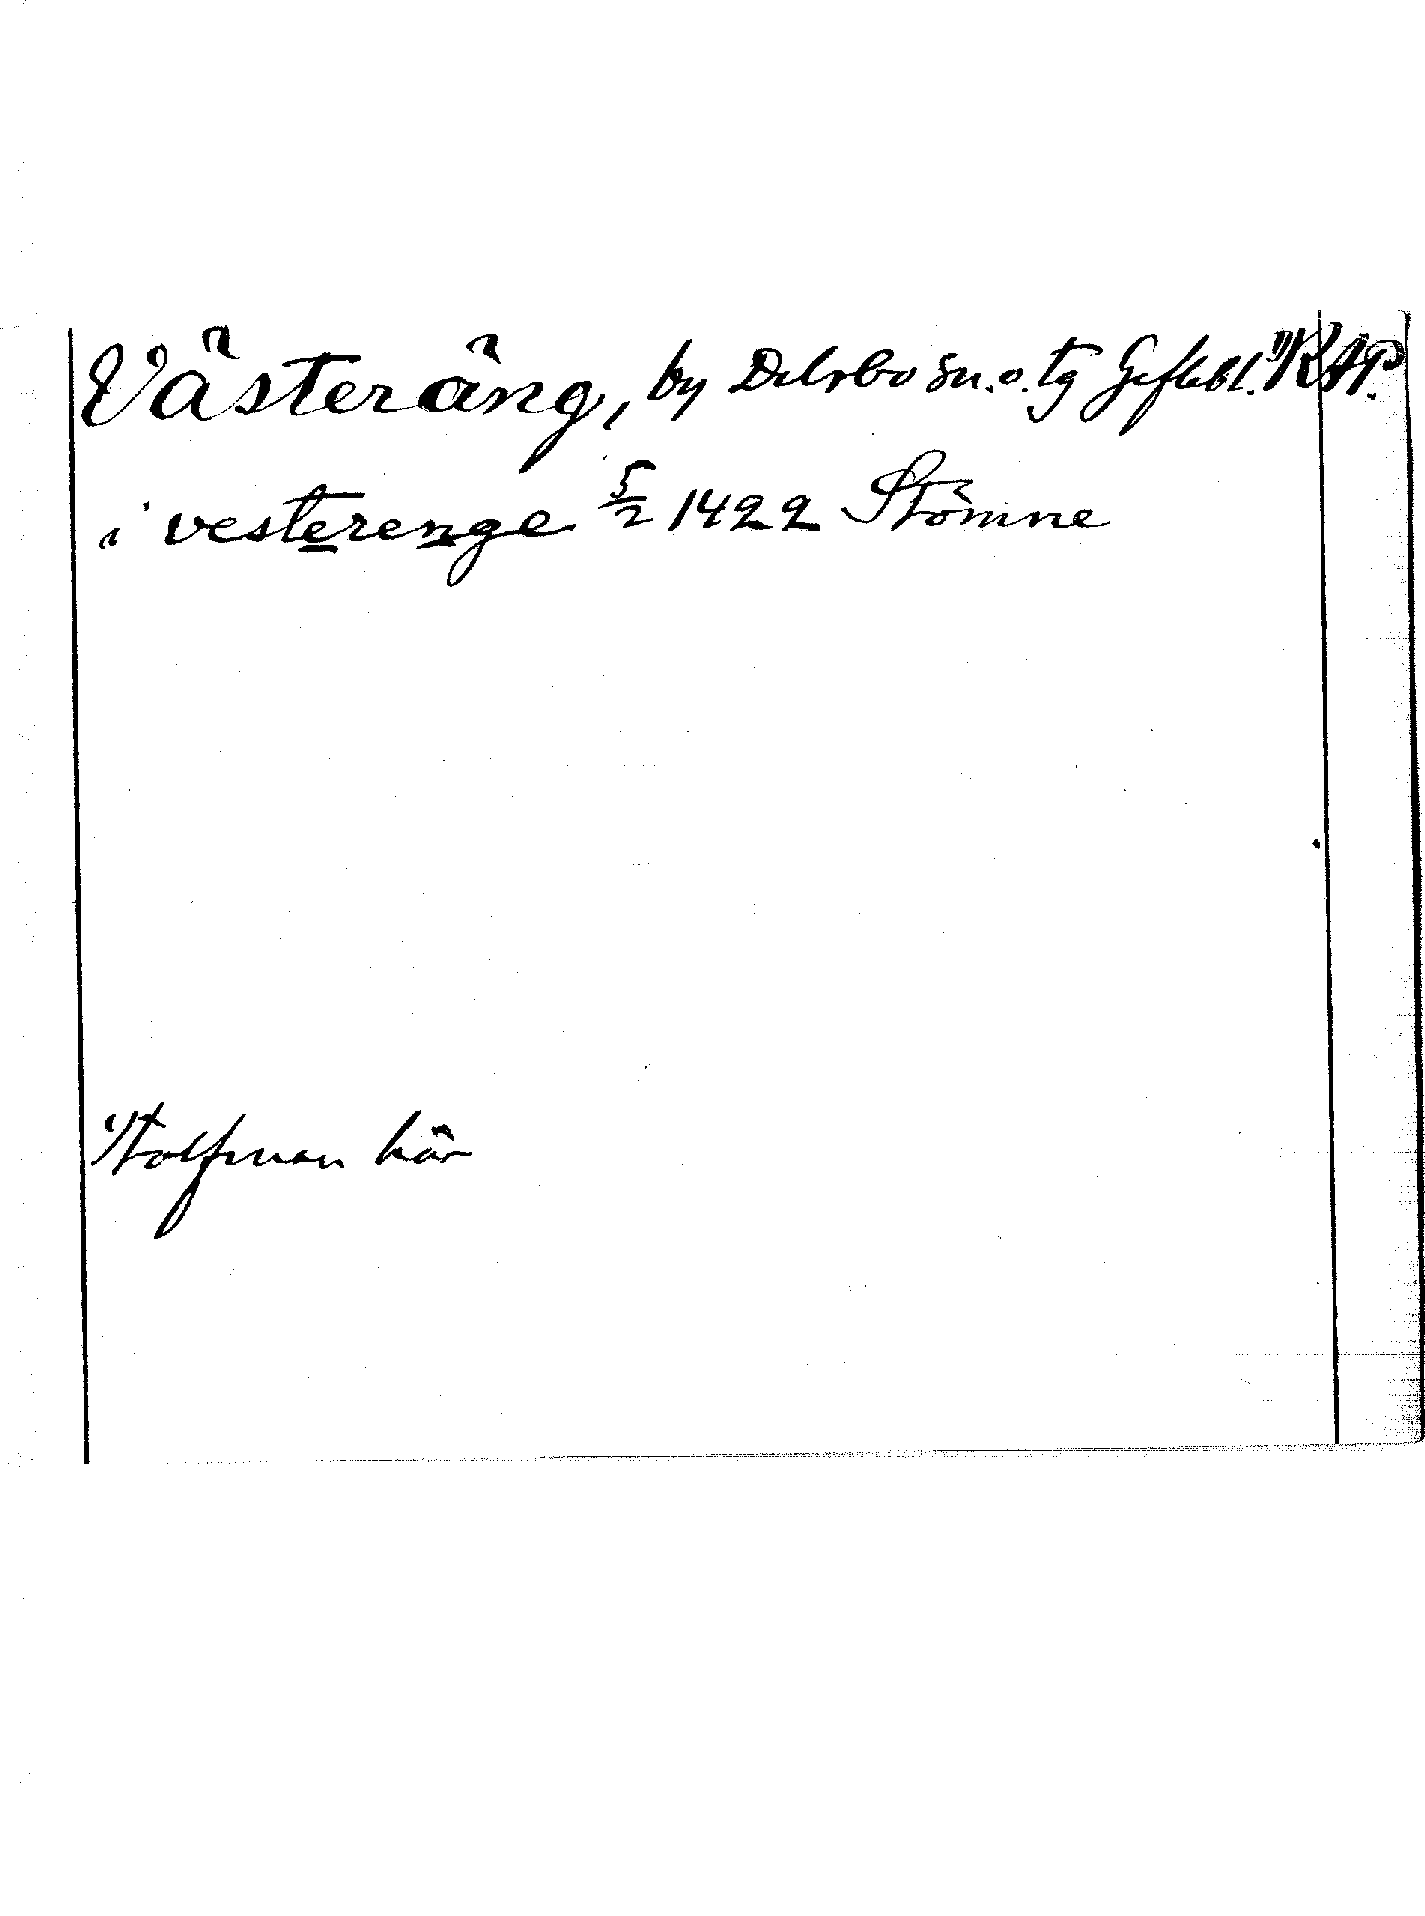 Västeräng, by Delsbo sn. o. tg Gefleb l. RAP.
i vesterenge 5/2 1422 Stömne
här